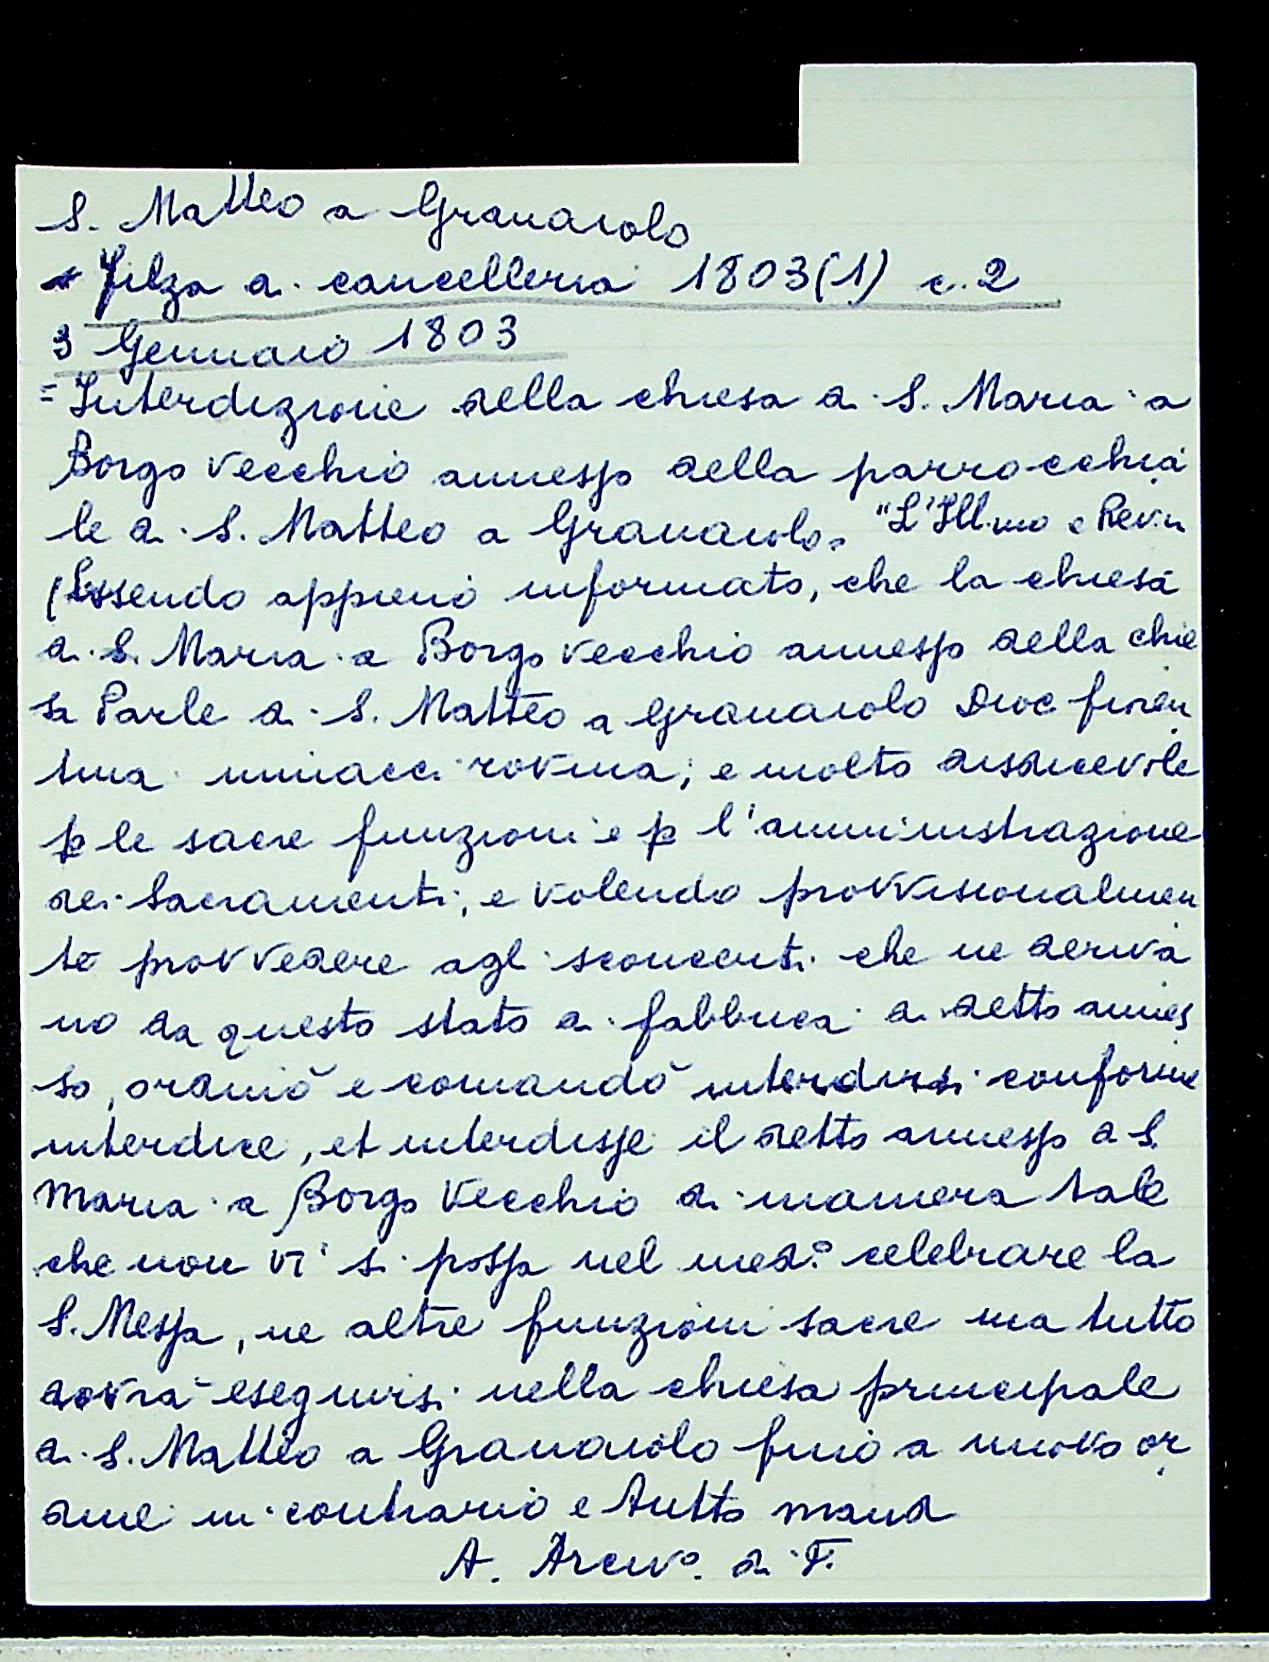 S. Matteo a Granaiolo
Filza di cancelleria 1803(1) c. 2
3 Gennaio 1803
= Interdizione della chiesa di S. Maria a
Borgo Vecchio annesso della parrocchia
le di S. Matteo a Granaiolo. "L'Ill.mo e Rev.m
(Essendo appieno informato, che la chiesa
di S. Maria a Borgo Vecchio annesso della chie
sa Parle di S. Matteo a Granaiolo Dioc fioren
tina minacci rovina; e molto disdicevole
p le sacre funzioni e p l'amministrazione
dei Sacramenti; e volendo provvisionalmen
te provvedere agli sconcerti che ne deriva
no da questo stato di fabbrica di detto annes
so, ordinò e comandò interdirsi conforme
interdice, et interdisse il detto annesso di S.
Maria a Borgo Vecchio di maniera tale
che non vi si possa nel med:o celebrare la
S. Messa, ne altre funzioni sacre ma tutto
dovrà eseguirsi nella chiesa principale
di S. Matteo a Granaiolo fino a nuovo or
dine in contrario e tutto mand
A. Arciv.o di F.